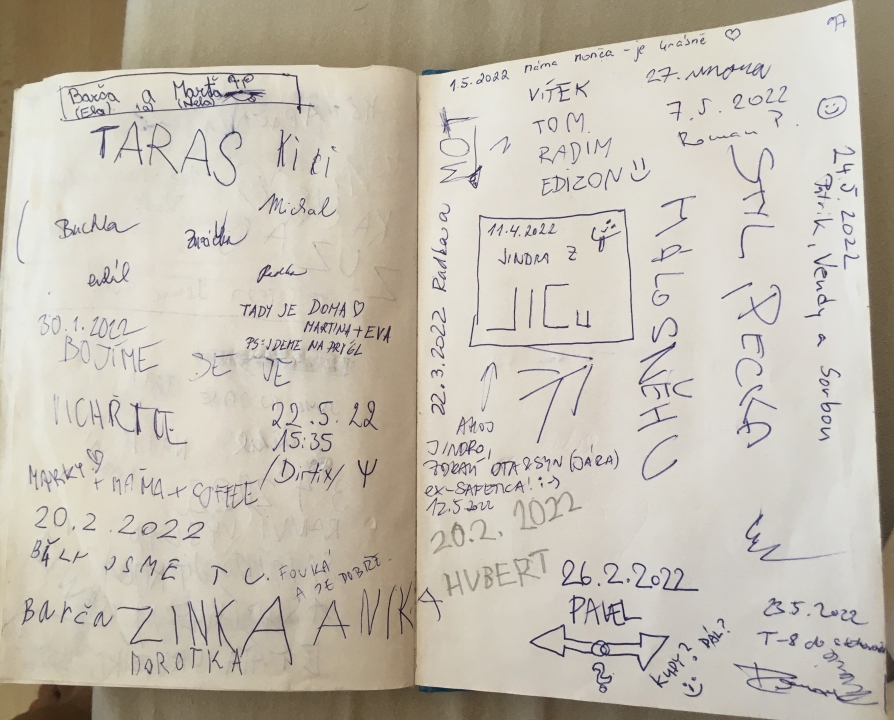 Barča a Marťa
(Ela) (a) (Nela)
TARAS Kiči
Michal
Buchla
Zuzička
Radka
TADY JE DOMA ♡
MARTINA + EVA
PS: JDEME NA PRÝGL
30.1.2022
BOJÍME SE JE
VICHŘICE
22.5.22
15:35
/Dirtix/ Ψ
MARKY ♡ + MÁMA + COFFEE
20.2.2022
BYLI JSME TU. FOUKÁ
A JE DOBŘE.
Barča ZINKA ANIKA
DOROTKA
1.5.2022 máma Monča - je krásně ♡
VÍTEK
TOM
RADIM
EDIZON
27. února
7.5.2022
Roman ?
24.5.2022
Patrik, Vendy a Sorbon
SML PECKA
MÁLO SNĚHU
22.3.2022 Radka a MOT
11.4.2022
JINDRA Z
JIC
AHOJ
JINDRO,
ZDRAVÍ OTA & SYN (JÁRA)
ex-SAFETICA! :-)
12.5.2022
20.2.2022
HUBERT
26.2.2022
PAVEL
KUDY? DÁL?
?
23.5.2022
T-8 do